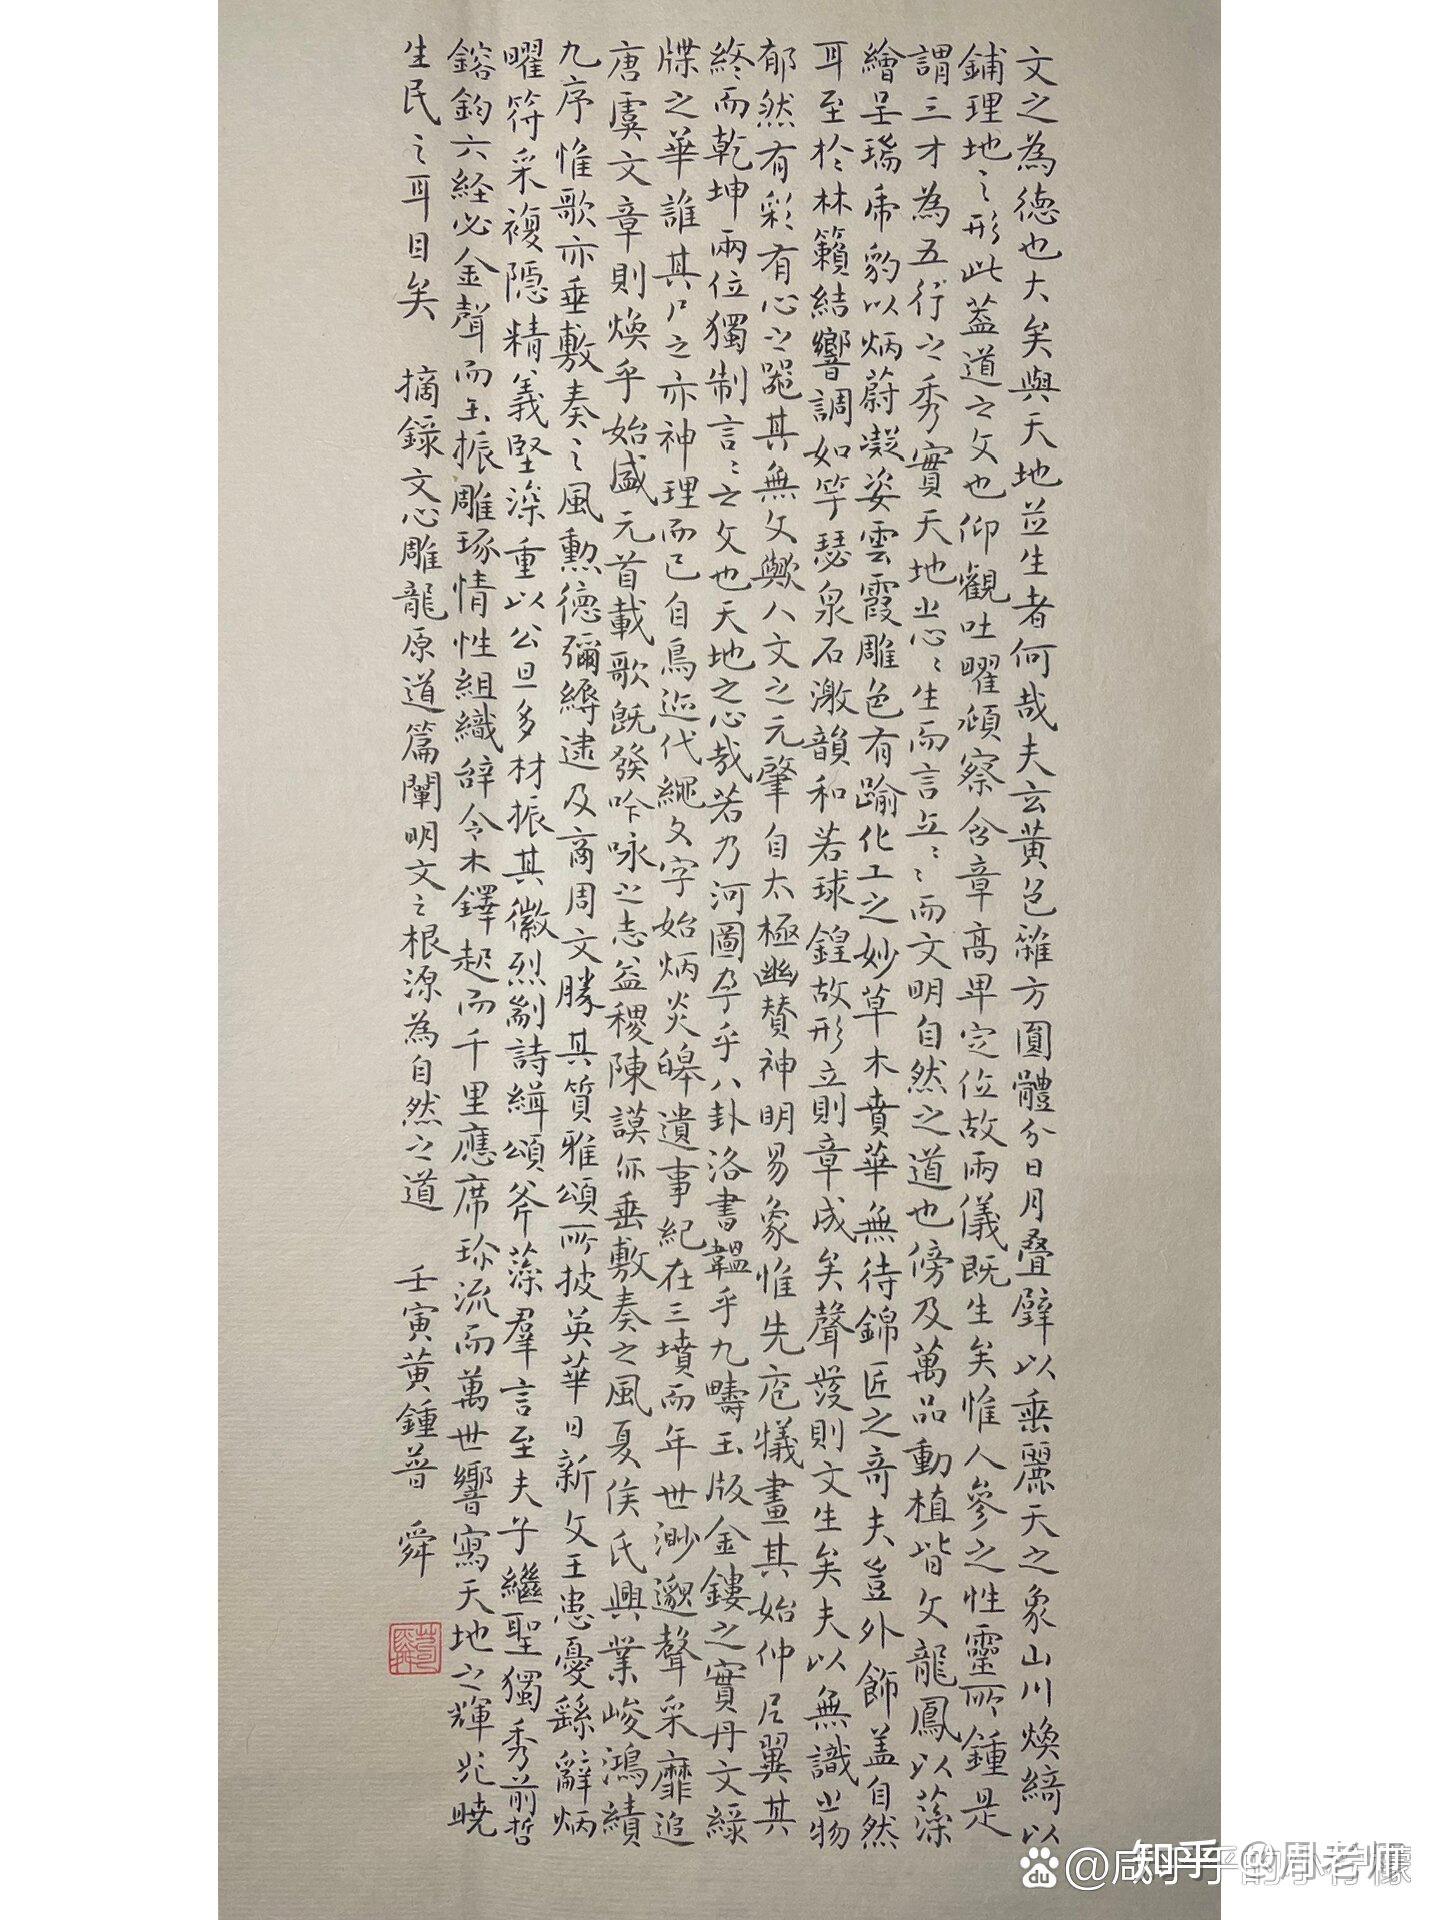 文之為德也大矣與天地並生者何哉夫玄黃色雜方圓體分日月疊璧以垂麗天之象山川煥綺以
鋪理地之形此蓋道之文也仰觀吐曜頫察含章高卑定位故兩儀既生矣惟人參之性靈所鍾是
謂三才為五行之秀實天地之心々生而言立々而文明自然之道也傍及萬品動植皆文龍鳳以藻
繪呈瑞虎豹以炳蔚凝姿雲霞雕色有踰化工之妙草木賁華無待錦匠之奇夫豈外飾蓋自然
耳至於林籟結響調如竽瑟泉石激韻和若球鍠故形立則章成矣聲發則文生矣夫以無識之物
郁然有彩有心之器其無文歟人文之元肇自太極幽贊神明易象惟先庖犧畫其始仲尼翼其
終而乾坤兩位獨制言々之文也天地之心哉若乃河圖孕乎八卦洛書韞乎九疇玉版金鏤之實丹文綠
牒之華誰其尸之亦神理而已自鳥迹代繩文字始炳炎皞遺事紀在三墳而年世渺邈聲采靡追
唐虞文章則煥乎始盛元首載歌既發吟咏之志益稷陳謨亦垂敷奏之風夏侯氏興業峻鴻績
九序惟歌亦垂敷奏之風勳德彌縟逮及商周文勝其質雅頌所披英華日新文王患憂繇辭炳
曜符采複隱精義堅深重以公旦多材振其徽烈剬詩緝頌斧藻羣言至夫子繼聖獨秀前哲
鎔鈞六經必金聲而玉振雕琢情性組織辞令木鐸起而千里應席珍流而萬世響寫天地之輝光曉
生民之耳目矣 摘錄文心雕龍原道篇闡明文之根源為自然之道 壬寅黃鍾普 舜
知乎 @周老师